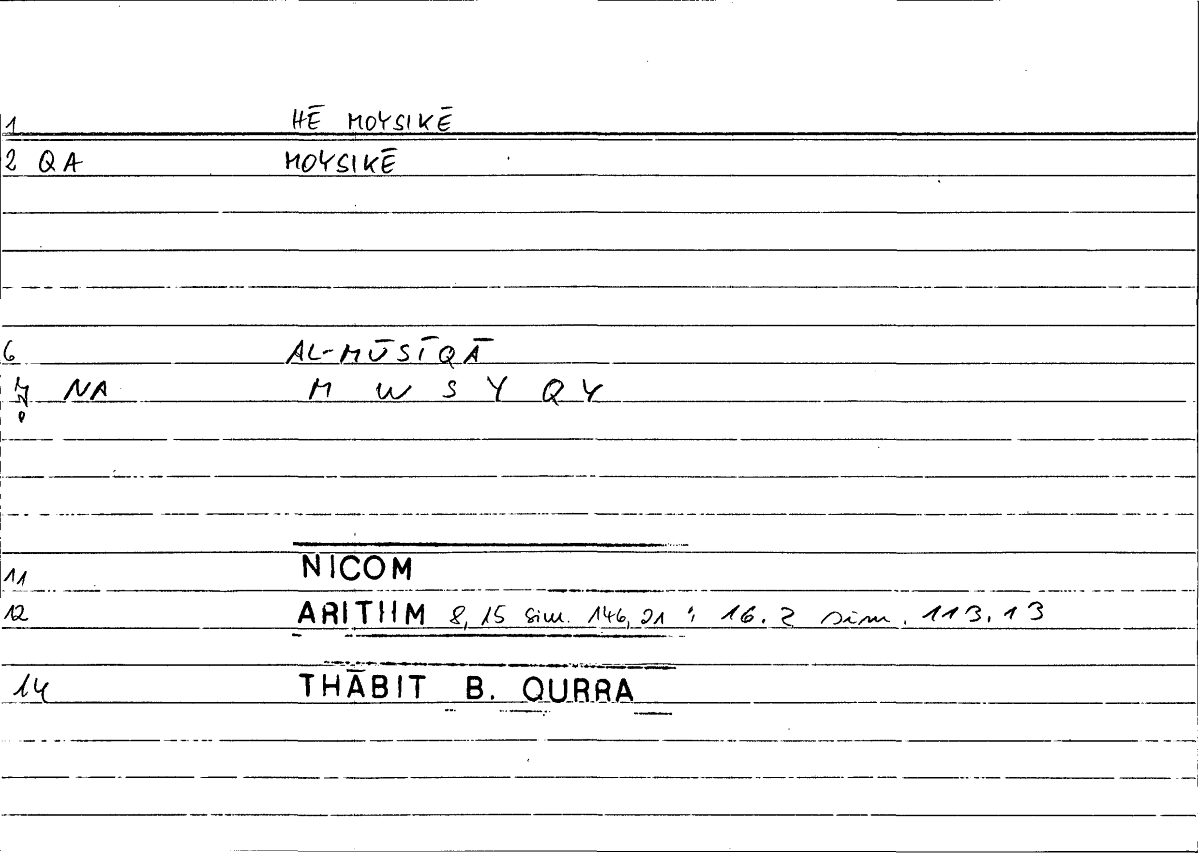 1 HĒ MOYSIKĒ
2 QA MOYSIKĒ
6 AL-MŪSĪQĀ
7 NA M W S Y Q Y
11 NICOM
12 ARITHM 8, 15 sim. 146, 21 ; 16. 2 sim. 113. 13
14 THĀBIT B. QURRA